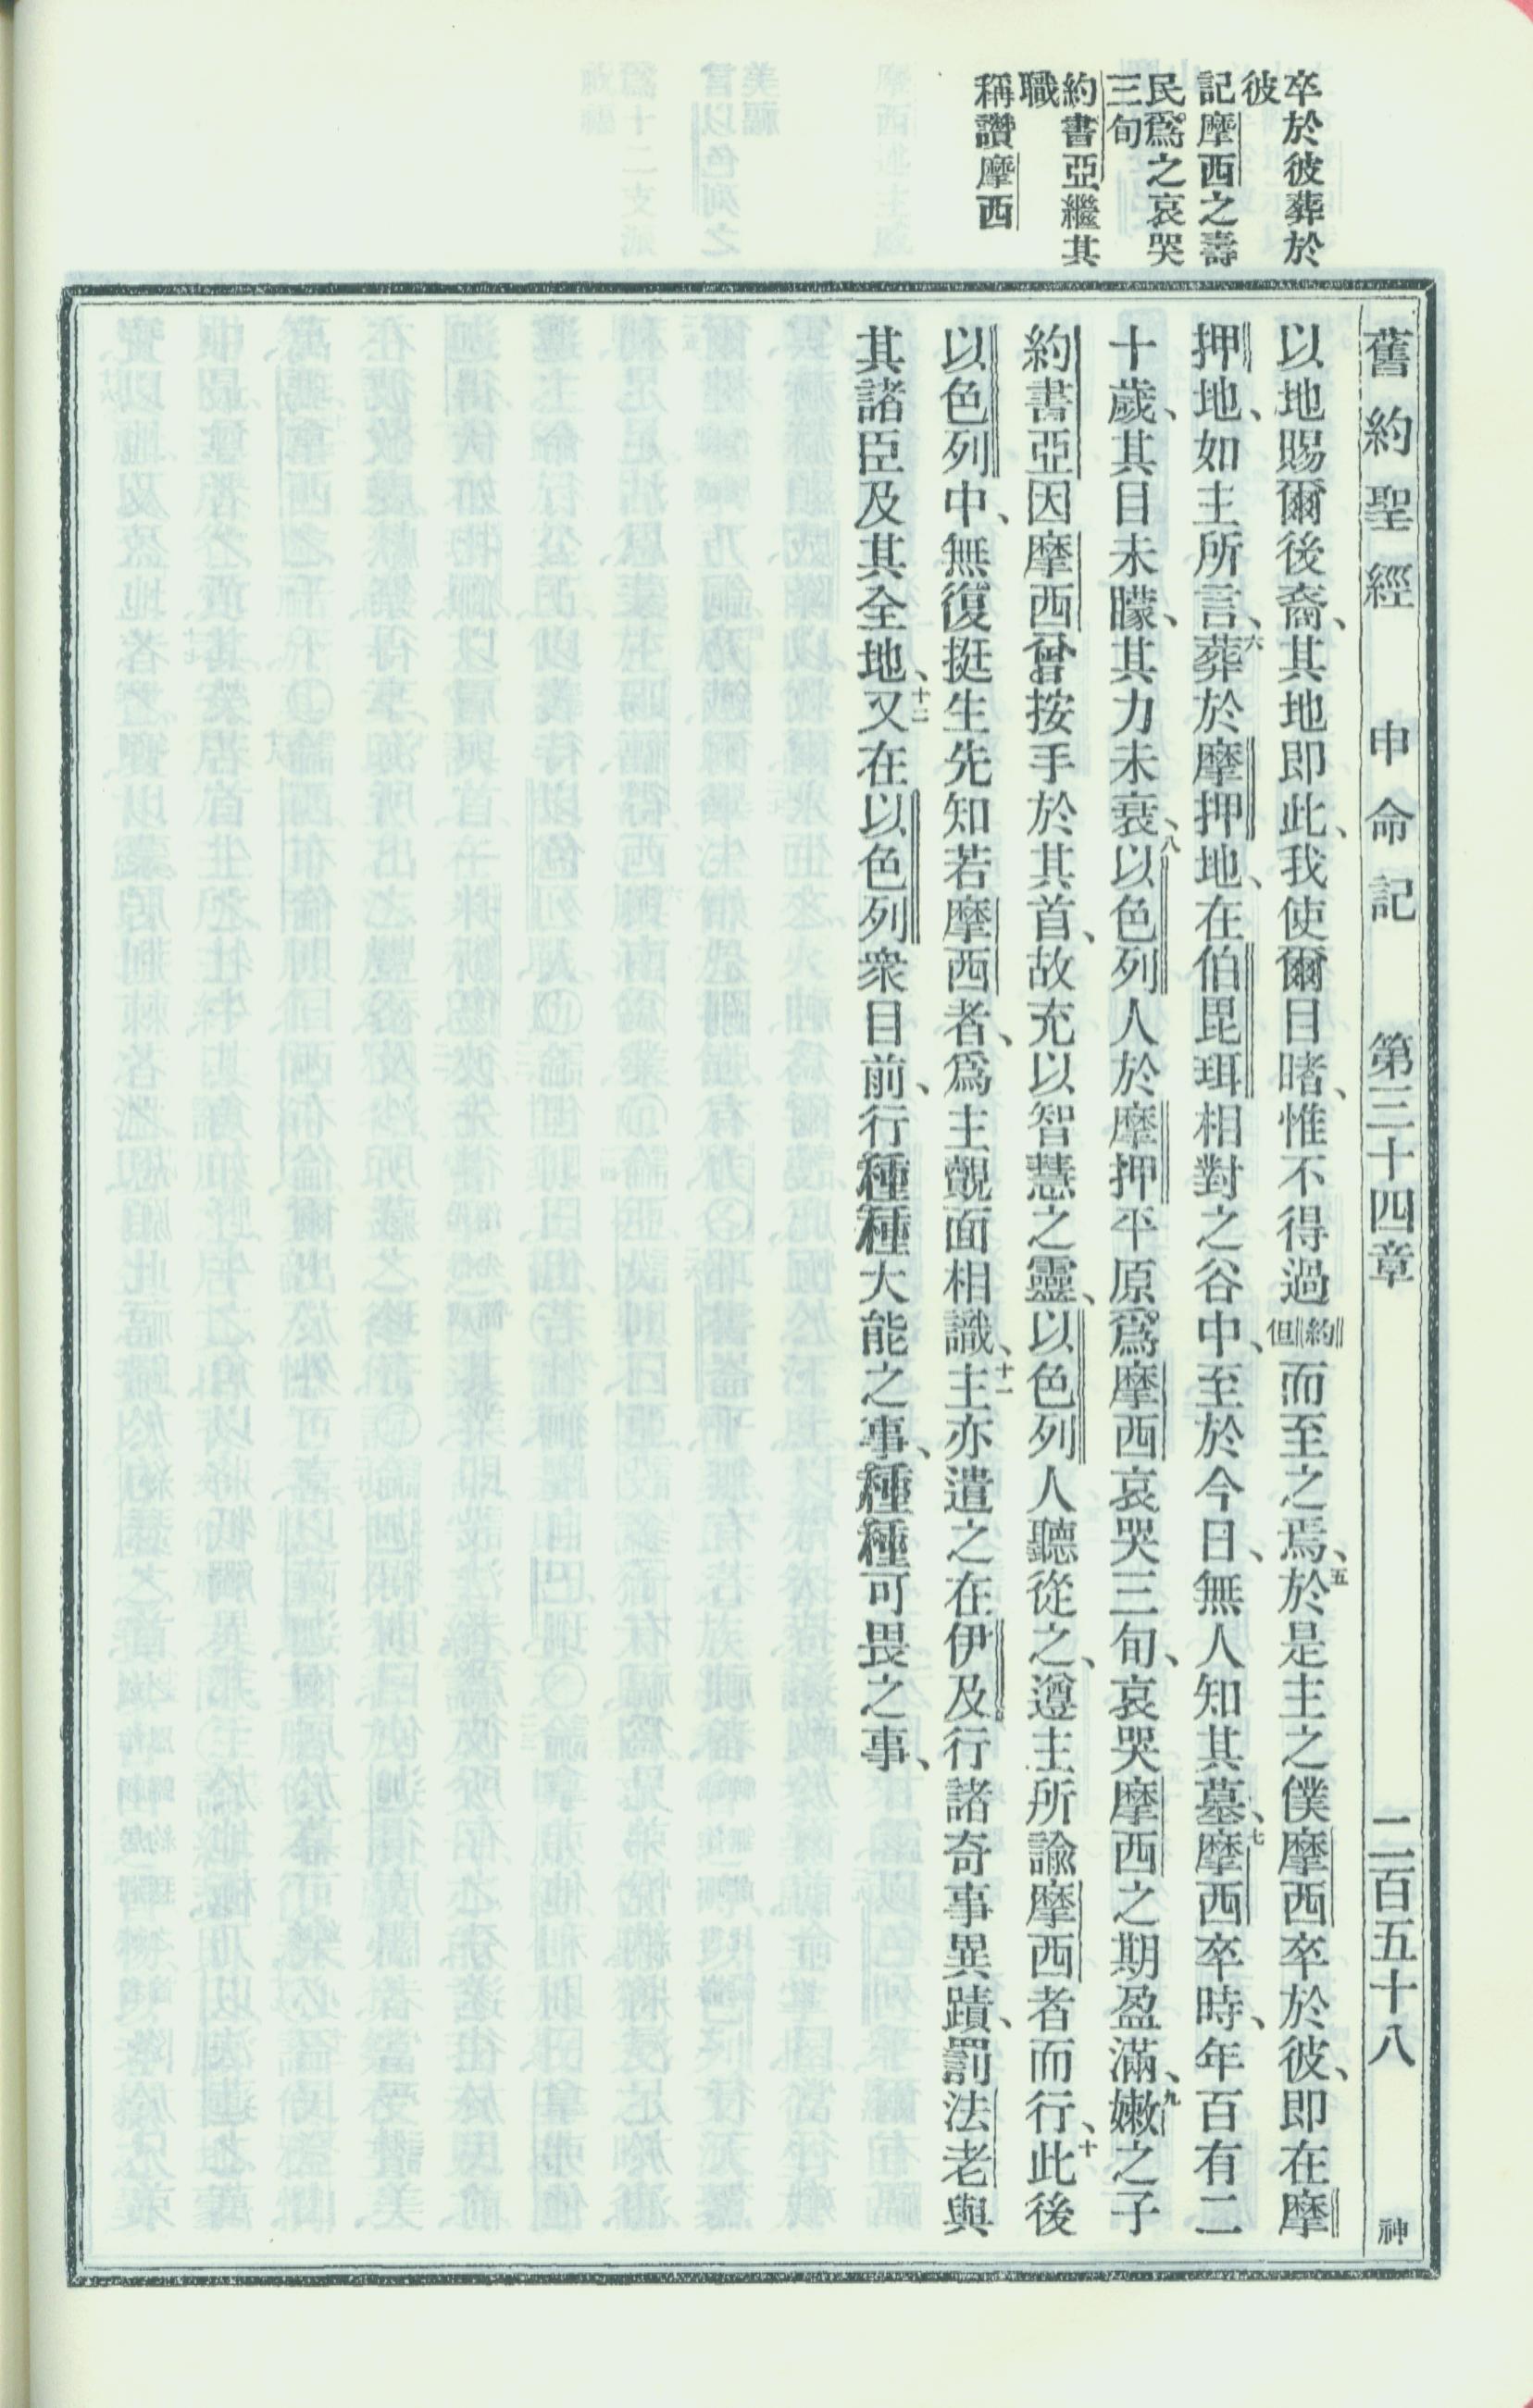 卒於彼葬於
彼
記摩西之壽
民爲之哀哭
三旬
約書亞繼其
職
稱讚摩西
舊約聖經 申命記 第三十四章 二百五十八 神
以地賜爾後裔、其地即此、我使爾目睹、惟不得過約但而至之焉、五於是主之僕摩西卒於彼、即在摩
押地、如主所言、六葬於摩押地、在伯毘珥相對之谷中、至於今日、無人知其墓、七摩西卒時、年百有二
十歲、其目未矇、其力未衰、八以色列人於摩押平原爲摩西哀哭三旬、哀哭摩西之期盈滿、九嫩之子
約書亞因摩西曾按手於其首、故充以智慧之靈、以色列人聽從之、遵主所諭摩西者而行、十此後
以色列中、無復挺生先知若摩西者、爲主覿面相識、十一主亦遣之在伊及行諸奇事異蹟、罰法老與
其諸臣及其全地、十二又在以色列衆目前、行種種大能之事、種種可畏之事、